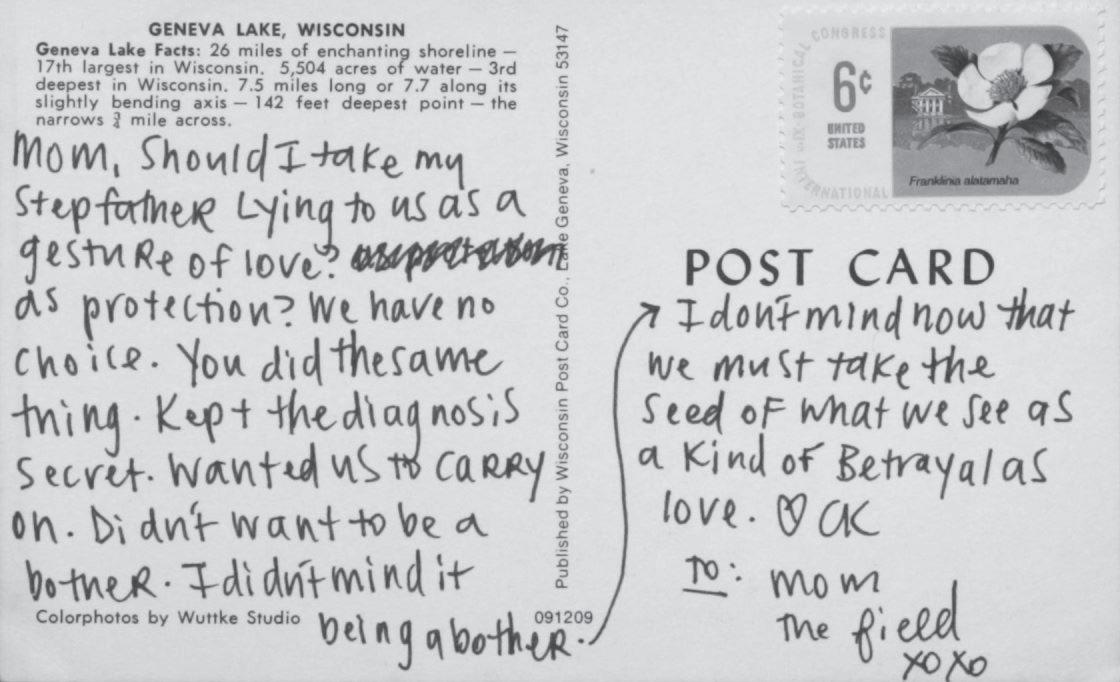 GENEVA LAKE, WISCONSIN
Geneva Lake Facts: 26 miles of enchanting shoreline —
17th largest in Wisconsin. 5,504 acres of water — 3rd
deepest in Wisconsin. 7.5 miles long or 7.7 along its
slightly bending axis — 142 feet deepest point — the
narrows ¾ mile across.
Mom, Should I take my
Stepfather Lying to us as a
gesture of love?
as protection? We have no
choice. You did the same
thing. Kept the diagnosis
secret. Wanted us to CARRY
on. Didn't want to be a
bother. I didn't mind it
being a bother.
Colorphotos by Wuttke Studio
091209
Published by Wisconsin Post Card Co., Lake Geneva, Wisconsin 53147
INTERNATIONAL
BOTANICAL
CONGRESS
6¢
UNITED
STATES
Franklinia alatamaha
POST CARD
I don't mind now that
we must take the
seed of what we see as
a kind of Betrayal as
love. ♡ CK
TO: mom
The field
xoxo